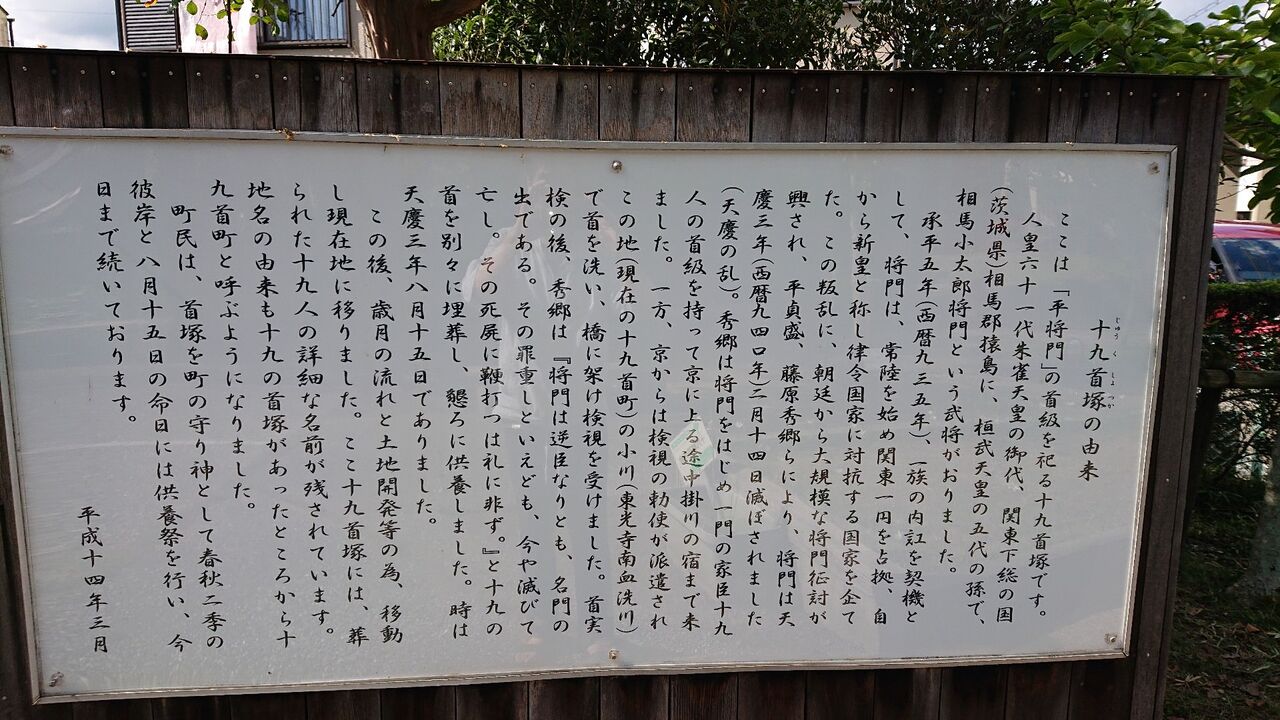 十九首塚の由来
じゅうくしょつか
ここは「平将門」の首級を祀る十九首塚です。
人皇六十一代朱雀天皇の御代、関東下総の国
(茨城県)相馬郡猿島に、桓武天皇の五代の孫で、
相馬小太郎将門という武将がおりました。
承平五年(西暦九三五年)、一族の内訌を契機と
して、将門は、常陸を始め関東一円を占拠、自
から新皇と称し律令国家に対抗する国家を企て
た。この叛乱に、朝廷から大規模な将門征討が
興され、平貞盛、藤原秀郷らにより、将門は天
慶三年(西暦九四〇年)二月十四日滅ぼされました
(天慶の乱)。秀郷は将門をはじめ一門の家臣十九
人の首級を持って京に上る途中掛川の宿まで来
ました。一方、京からは検視の勅使が派遣され
この地(現在の十九首町)の小川(東光寺南血洗川)
で首を洗い、橋に架け検視を受けました。首実
検の後、秀郷は『将門は逆臣なりとも、名門の
出である。その罪重しといえども、今や滅びて
亡し。その死屍に鞭打つは礼に非ず。』と十九の
首を別々に埋葬し、懇ろに供養しました。時は
天慶三年八月十五日でありました。
この後、歳月の流れと土地開発等の為、移動
し現在地に移りました。ここ十九首塚には、葬
られた十九人の詳細な名前が残されています。
地名の由来も十九の首塚があったところから十
九首町と呼ぶようになりました。
町民は、首塚を町の守り神として春秋二季の
彼岸と八月十五日の命日には供養祭を行い、今
日まで続いております。
平成十四年三月